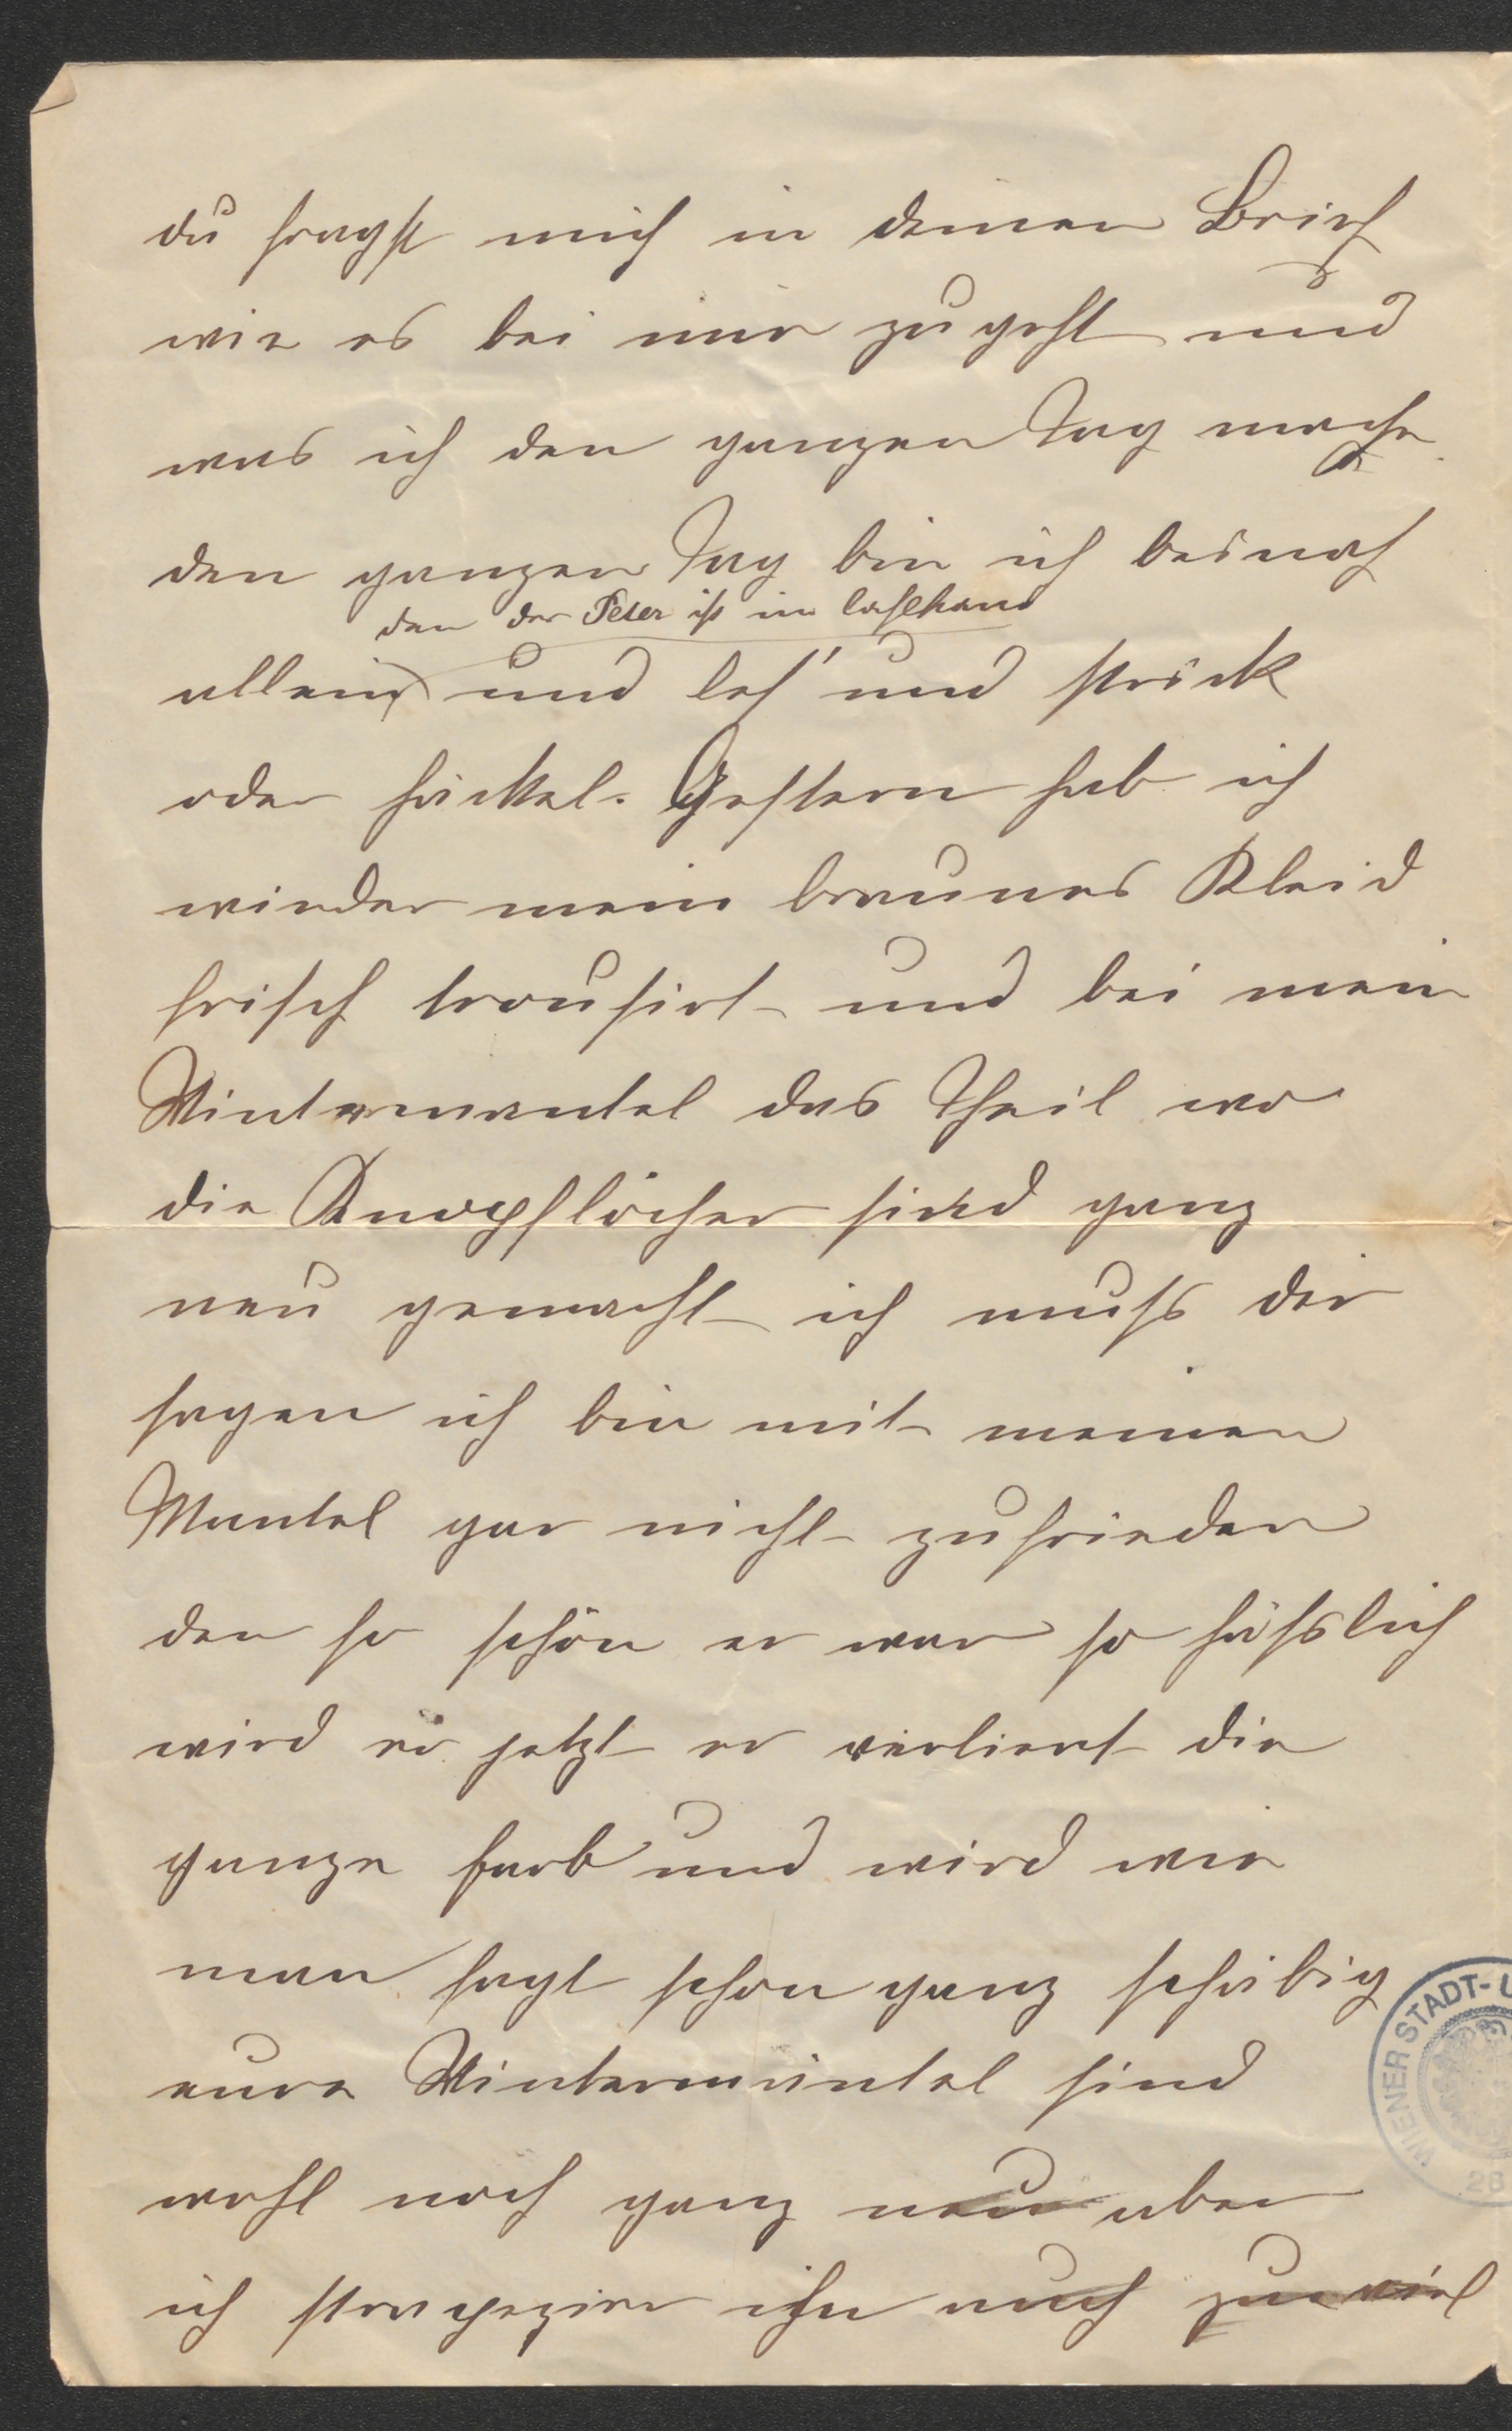 du fragst mich in deinen Brief
wie es bei mir zugeht und
was ich den ganzen Tag mache.
den ganzen Tag bin ich beinah
den der Peter ist im
allein und les' und strick
oder häckel. Gestern hab ich
wieder mein braunes Kleid
frisch and bei mein
Wintermantel das Theil wo
die Knopflöcher sind ganz
neu gemacht ich muss dir
sagen ich bin mit meinen
Mantel gar nicht zufrieden
den so schön er war so hässlich
wird er jetzt er verliert die
ganze Farb und wird wie
man sagt schon ganz schäbig
eure Wintermäntel sind
wohl noch ganz neu aber
ich strapezire ihn auch zu viel
WIENER STADT-
28